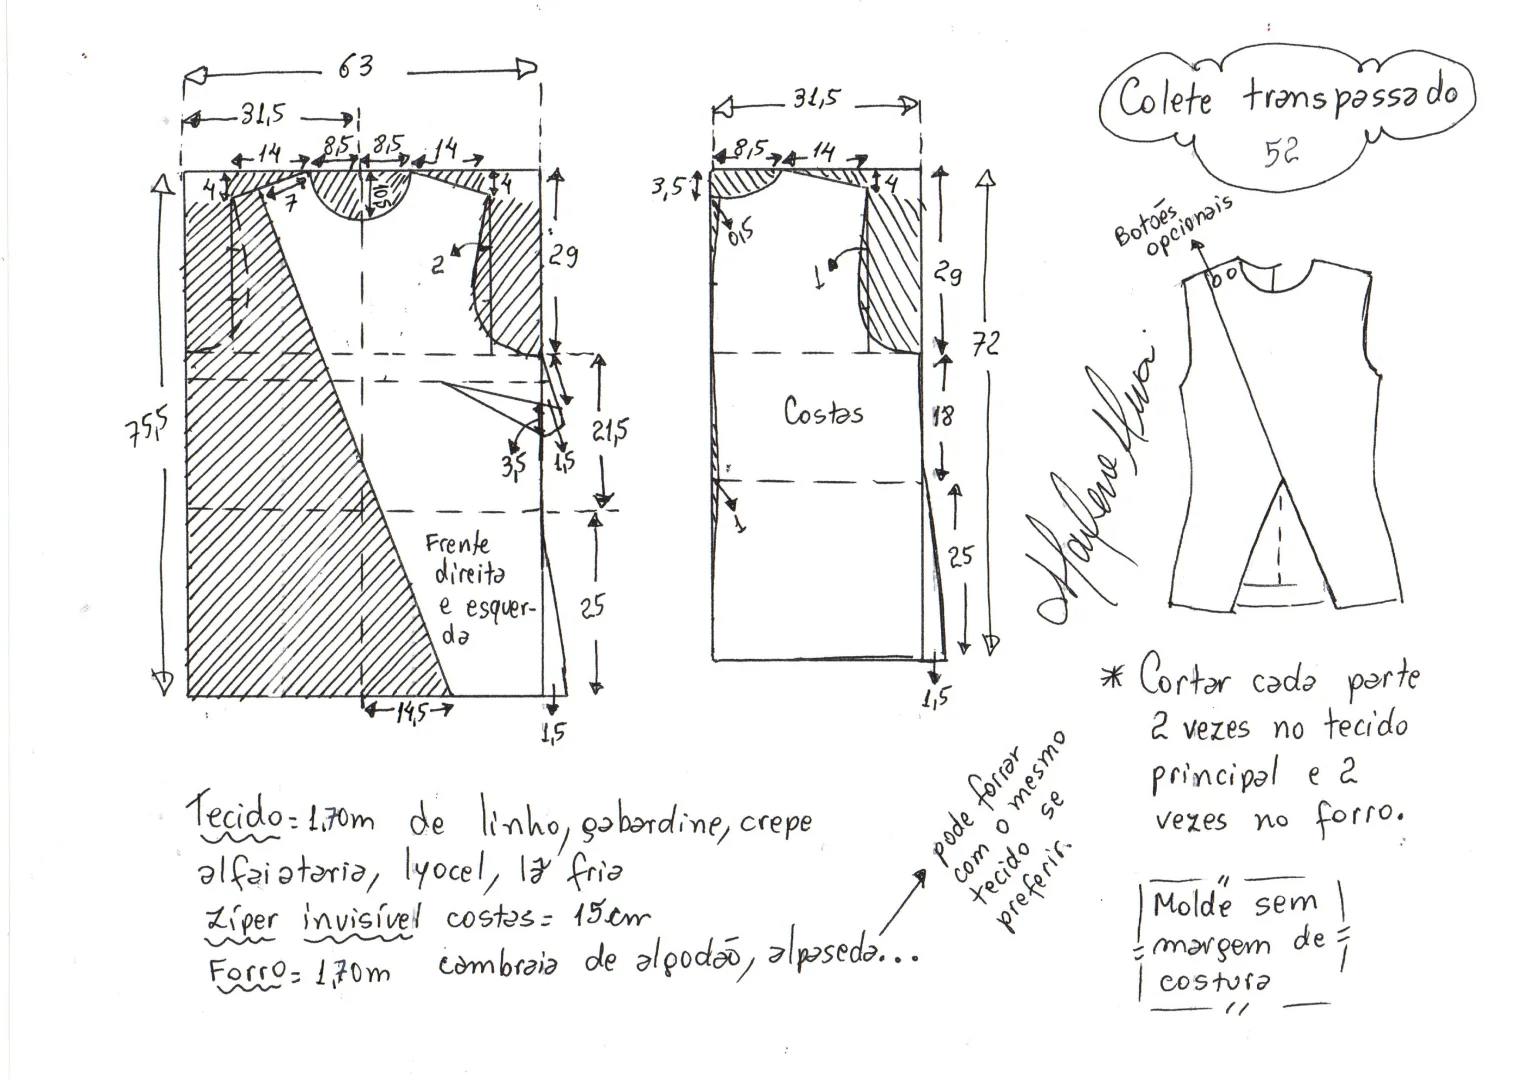 63
31,5
14
8,5
8,5
14
4
7
10,5
4
2
29
75,5
21,5
3,5
1,5
Frente
direita
e esquer-
da
25
14,5
1,5
31,5
8,5
14
3,5
4
0,5
1
29
72
Costas
18
1
25
1,5
Colete transpassado
52
Botões
opcionais
* Cortar cada parte
2 vezes no tecido
principal e 2
vezes no forro.
Molde sem
margem de
costura
Tecido = 1,70m de linho, gabardine, crepe
alfaiataria, lyocel, lã fria
Zíper invisível costas = 15cm
Forro = 1,70m cambraia de algodão, alpaseda...
pode forrar
com o mesmo
tecido se
preferir.